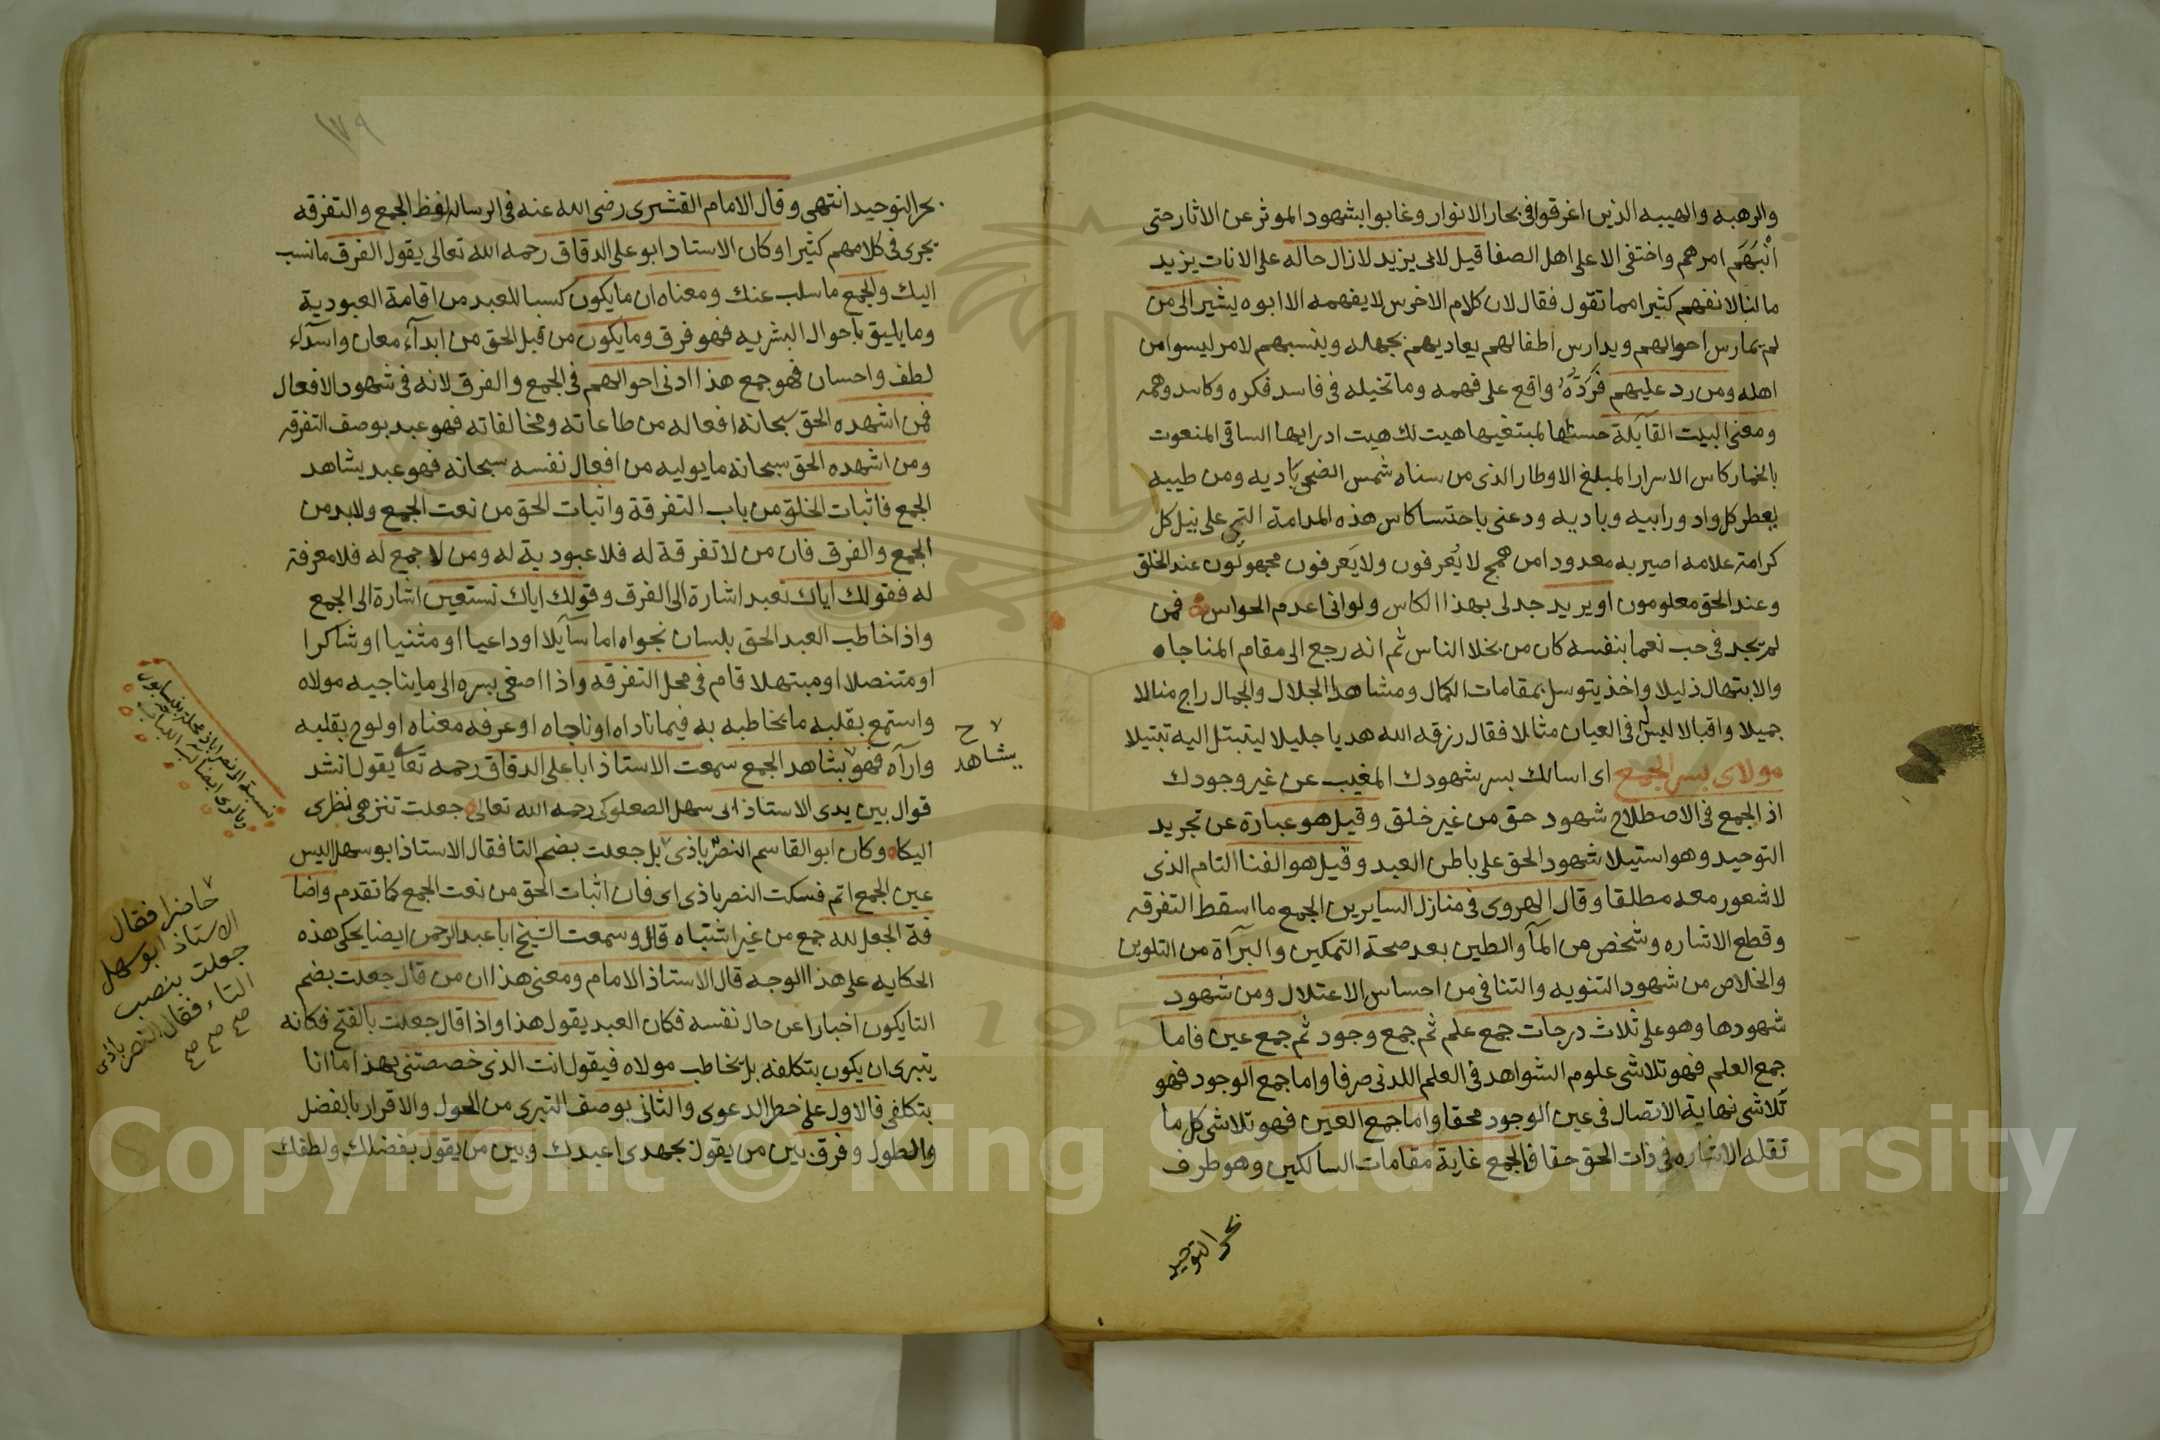 والرهبه والهيبه الذين اغرقوا في بحار الانوار وغابوا بشهود الموثر عن الاثار حتى
انبهم امرهم واختفى الا على اهل الصفا قيل لابى يزيد لازال حاله على الانات يزيد
مالنا لا نفهم كثيرا مما تقول فقال لان كلام الاخرس لا يفهمه الا ابوه يشير الى من
لم يمارس احوالهم ويدارس اطفالهم يعاديهم بجهله وينسبهم لامر ليسوا من
اهله ومن رد عليهم فرده واقع على فهمه وما تخيله في فاسد فكره وكاسد وهمه
ومعنى البيت القايلة حسناها لمبتغيها هيت لك هيت ادر ايها الساقى المنعوت
بالخمار كاس الاسرار المبلغ الاوطار الذى من سناه شمس الضحى باديه ومن طيبه
يعطر كل واد ورابيه وباديه ودعنى باحتسا كاس هذه المدامة التى على نيل كل
كرامة علامه اصير به معدودا من همج لا يُعرفون ولا يَعرفون مجهولون عند الخلق
وعند الحق معلومون او يريد جد لى بهذا الكاس ولو انى اعدم الحواس فمن
لم يجد فى حب نعما بنفسه كان من بخلا الناس ثم انه رجع الى مقام المناجاه
والابتهال ذليلا واخذ يتوسل بمقامات الكمال ومشاهدا لجلال والجمال راج منالا
جميلا واقبالا ليس له فى العيان مثالا فقال رزقه الله هديا جليلا ليتبتل اليه تبتيلا
مولاى بسر الجمع اى اسالك بسر شهودك المغيب عن غير وجودك
اذ الجمع فى الاصطلاح شهود حق من غير خلق وقيل هو عبارة عن تجريد
التوحيد وهو استيلا شهود الحق على باطن العبد وقيل هو الفنا التام الذى
لا شعور معه مطلقا وقال الهروى فى منازل السايرين الجمع ما اسقط التفرقه
وقطع الاشاره وشخص عن المآ والطين بعد صحة التمكين والبرآة من التلوين
والخلاص من شهود التنويه والتنافى من احساس الاعتلال ومن شهود
شهودها وهو على ثلاث درجات جمع علم ثم جمع وجود ثم جمع عين فاما
جمع العلم فهو تلاشى علوم الشواهد فى العلم اللدنى صرفا واما جمع الوجود فهو
تلاشى نهاية الاتصال فى عين الوجود محقا واما جمع العين فهو تلاشى كل ما
تقله الاشاره فى ذات الحق حقا فالجمع غاية مقامات السالكين وهو طرف
بحر التوحيد
١٧٩
بحر التوحيد انتهى وقال الامام القشيرى رضى الله عنه فى الرساله لفظ الجمع والتفرقه
يجرى فى كلامهم كثيرا وكان الاستاد ابو على الدقاق رحمه الله تعالى يقول الفرق ما نسب
اليك والجمع ما سلب عنك ومعناه ان ما يكون كسبا للعبد من اقامة العبودية
وما يليق باحوال البشريه فهو فرق وما يكون من قبل الحق من ابدآء معان واسدآء
لطف واحسان فهو جمع هذا ادنى احوالهم فى الجمع والفرق لانه فى شهود الافعال
فمن اشهده الحق سبحانه افعاله من طاعاته ومخالفاته فهو عبد بوصف التفرقه
ومن اشهده الحق سبحانه ما يوليه من افعال نفسه سبحانه فهو عبد يشاهد
الجمع فاثبات الخلق من باب التفرقة واثبات الحق من نعت الجمع ولابد من
الجمع والفرق فان من لا تفرقة له فلا عبودية له ومن لا جمع له فلا معرفة
له فقولك اياك نعبد اشارة الى الفرق وقولك اياك نستعين اشارة الى الجمع
واذا خاطب العبد الحق بلسان نجواه اما سآيلا او داعيا او مثنيا او شاكرا
او متنصلا او مبتهلا قام فى محل التفرقه واذا اصغى بسره الى ما يناجيه مولاه
واستمع بقلبه ما يخاطبه به فيما ناداه او ناجاه او عرفه معناه او لوح بقلبه
وارآه فهو يشاهد الجمع سمعت الاستاذ ابا على الدقاق رحمه تعالى يقول انشد
قوال بين يدى الاستاذ ابى سهل الصعلوكى رحمه الله تعالى جعلت تنزهى نظرى
اليكا وكان ابو القاسم النصرباذى بل جعلت بضم التا فقال الاستاذ ابو سهل اليس
عين الجمع اتم فسكت النصرباذى اى فان اثبات الحق من نعت الجمع كما تقدم واضا
فة الجعل لله جمع من غير اشتباه قال وسمعت الشيخ ابا عبد الرحمن ايضا يحكى هذه
الحكايه على هذا الوجه قال الاستاذ الامام ومعنى هذا ان من قال جعلت بضم
التا يكون اخبارا عن حال نفسه فكان العبد يقول هذا واذا قال جعلت بالفتح فكانه
يتبرى ان يكون بتكلفه بل يخاطب مولاه فيقول انت الذى خصصتنى بهذا ما انا
بتكلفى فالاول على خطر الدعوى والثانى بوصف التبرى من الحول والاقرار بالفضل
والطول وفرق بين من يقول بجهدى اعبدك وبين من يقول بفضلك ولطفك
ح
يشاهد
نسبة الى نصراباذ محلة بنيسابور
حاضرا فقال
الاستاذ ابو سهل
جعلت بنصب
التاء فقال النصرباذى
صح صح صح
Copyright © King Saud University
195